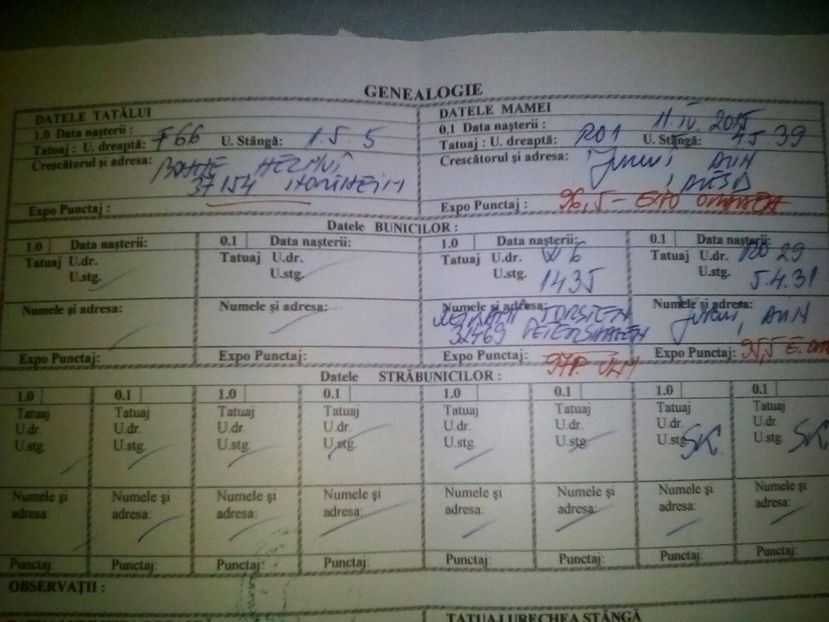 GENEALOGIE
DATELE TATĂLUI
1.0 Data nașterii :
Tatuaj : U. dreaptă: F66 U. Stângă: 1.5.5
Crescătorul și adresa:
37154
Expo Punctaj :
DATELE MAMEI
0.1 Data nașterii : 11 IV. 2015
Tatuaj : U. dreaptă: RO1 U. Stângă: 4.5.39
Crescătorul și adresa:
Expo Punctaj : 96,5 - EXPO
Datele BUNICILOR :
1.0 Data nașterii:
Tatuaj U.dr.
U.stg.
Numele și adresa:
Expo Punctaj:
0.1 Data nașterii:
Tatuaj U.dr.
U.stg.
Numele și adresa:
Expo Punctaj:
1.0 Data nașterii:
Tatuaj U.dr. W 6
U.stg. 1435
Numele și adresa:
TORSTEN
32469 PETERSHAGEN
Expo Punctaj: 97P. ULM
0.1 Data nașterii:
Tatuaj U.dr. RO 29
U.stg. 5.4.31
Numele și adresa:
Expo Punctaj: 95,5
Datele STRĂBUNICILOR :
1.0 0.1 1.0 0.1 1.0 0.1 1.0 0.1
Tatuaj Tatuaj Tatuaj Tatuaj Tatuaj Tatuaj Tatuaj Tatuaj
U.dr. U.dr. U.dr. U.dr. U.dr. U.dr. U.dr. U.dr.
U.stg. U.stg. U.stg. U.stg. U.stg. U.stg. U.stg. SK U.stg. SK
Numele și Numele și Numele și Numele și Numele și Numele și Numele și Numele și
adresa: adresa: adresa: adresa: adresa: adresa: adresa: adresa:
Punctaj: Punctaj: Punctaj: Punctaj: Punctaj: Punctaj: Punctaj: Punctaj:
OBSERVAȚII :
TATUAJ URECHEA STÂNGĂ